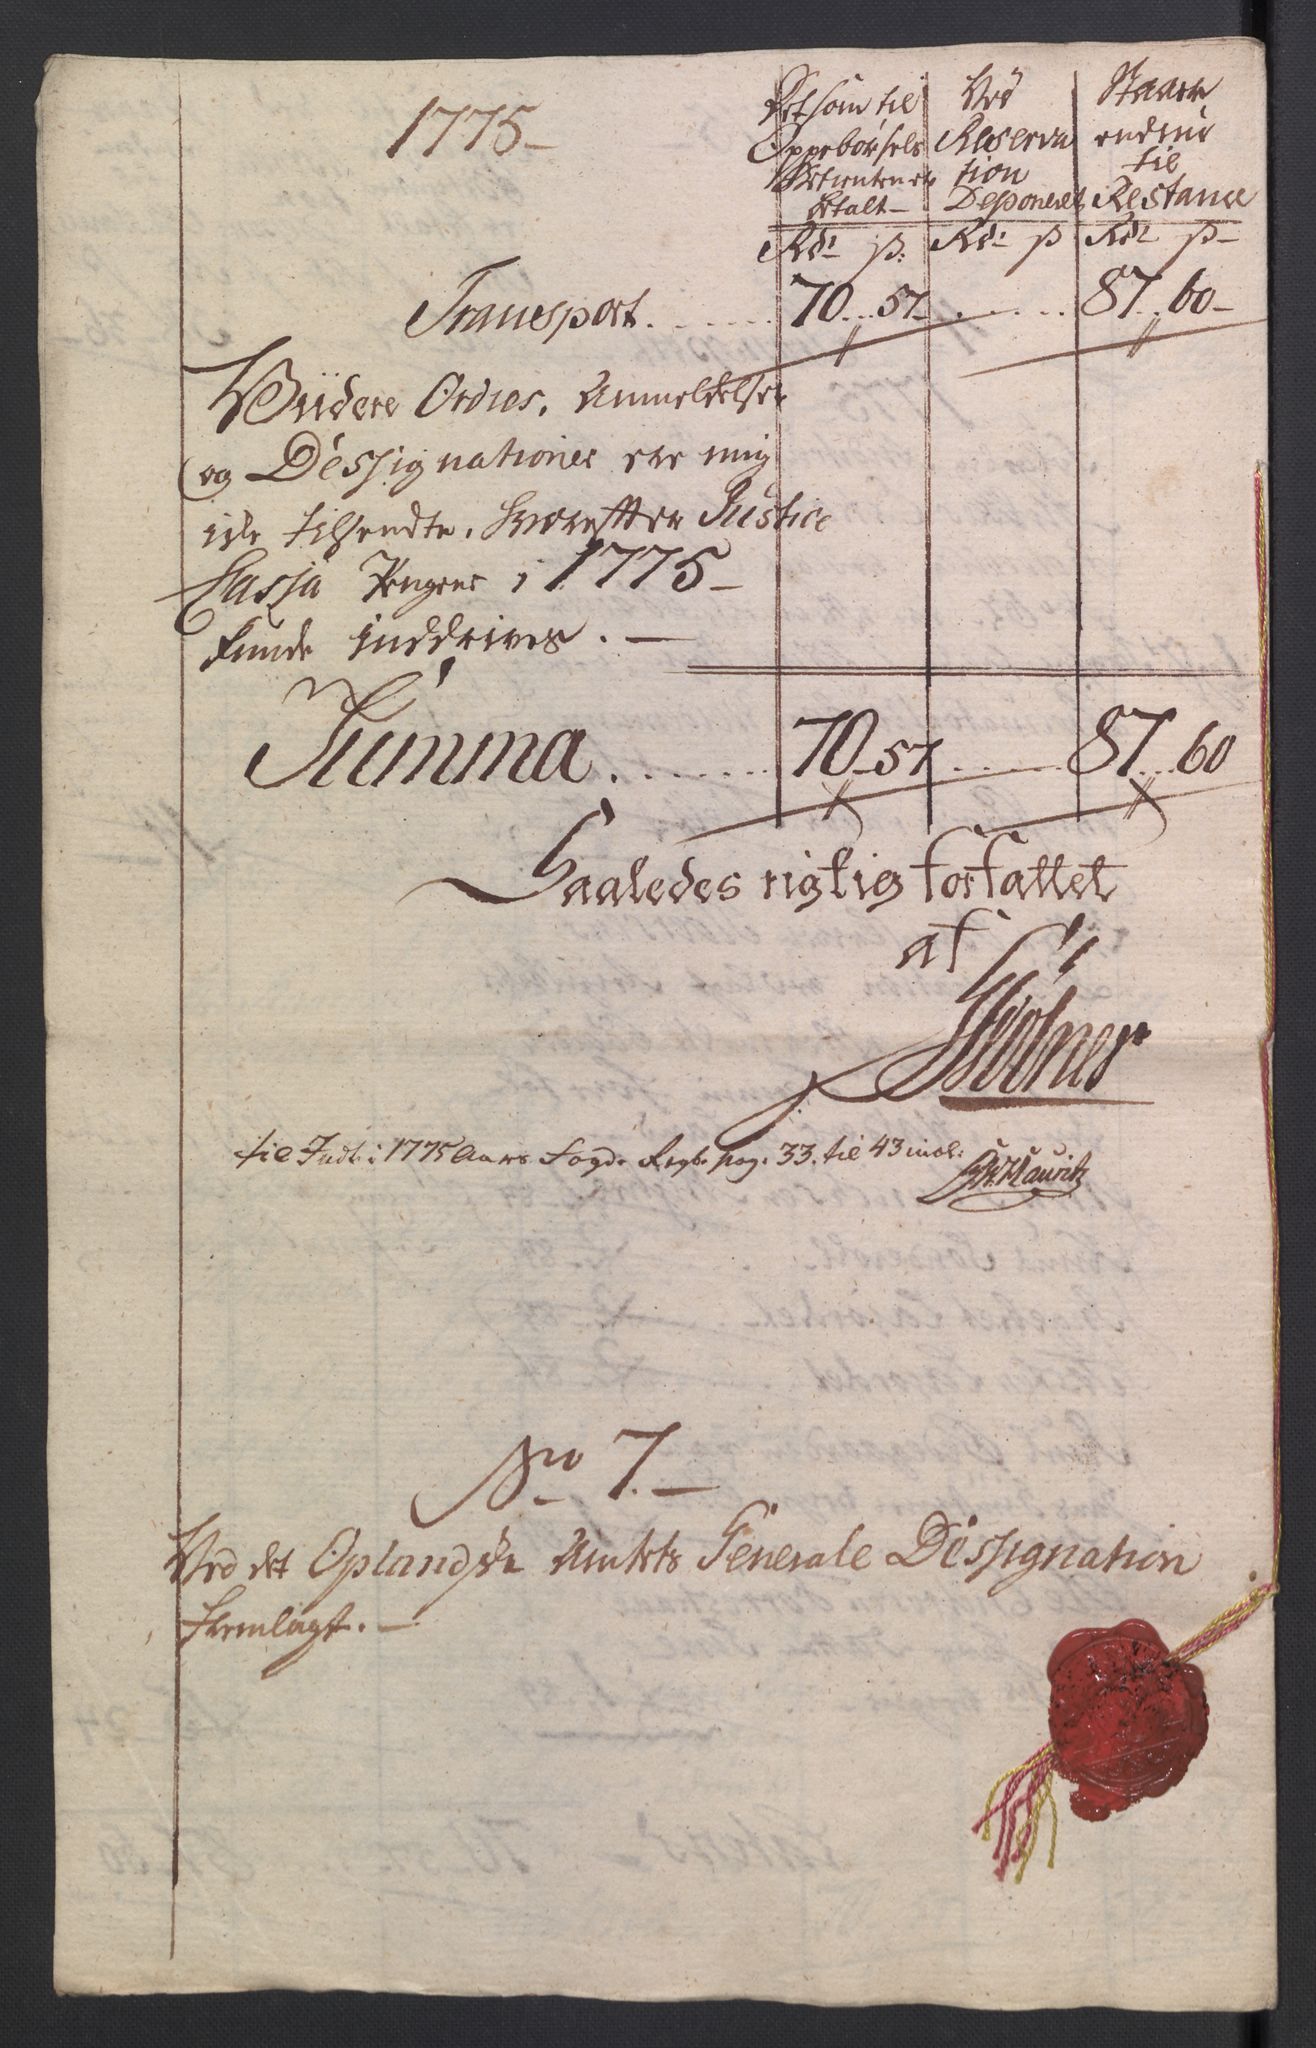 1775 –
Det som til Oppebørsels Betienterne betalt –
Ved Reservation Deponeret
Staaer endnu til Restance
Rd: ß: Rd: ß Rd: ß –
Transport . . . . . . 70 . . . 57 . . . . . . . 87 . . 60 –
Viidere Ordres, Anmeldelser
og Dessignationer ere mig
icke tilsendte, hvorefter Justice
Cassa Penger i 1775 –
kunde inddrives . —
Summa . . . . . . . 70 – 57 . . . . . . 87 . . . 60
Saaledes rigtig forfattet
af
til Indt: i 1775 Aars Fogde Regb: pag: 33. til 43 incl:
No 7. —
Ved det Oplandske Amtets Generale Dessignation
fremlagt. —